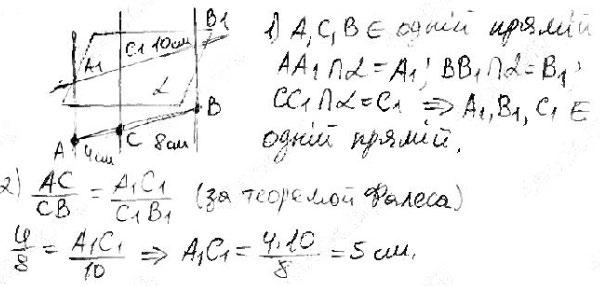 B₁
C₁ 10см
A₁
α
B
A 4см C 8см
1) A, C, B ∈ одній прямій
AA₁ ∩ α = A₁; BB₁ ∩ α = B₁;
CC₁ ∩ α = C₁ ⇒ A₁, B₁, C₁ ∈
одній прямій.
2) AC/CB = A₁C₁/C₁B₁ (за теоремой Фалеса)
4/8 = A₁C₁/10 ⇒ A₁C₁ = 4·10/8 = 5 см.